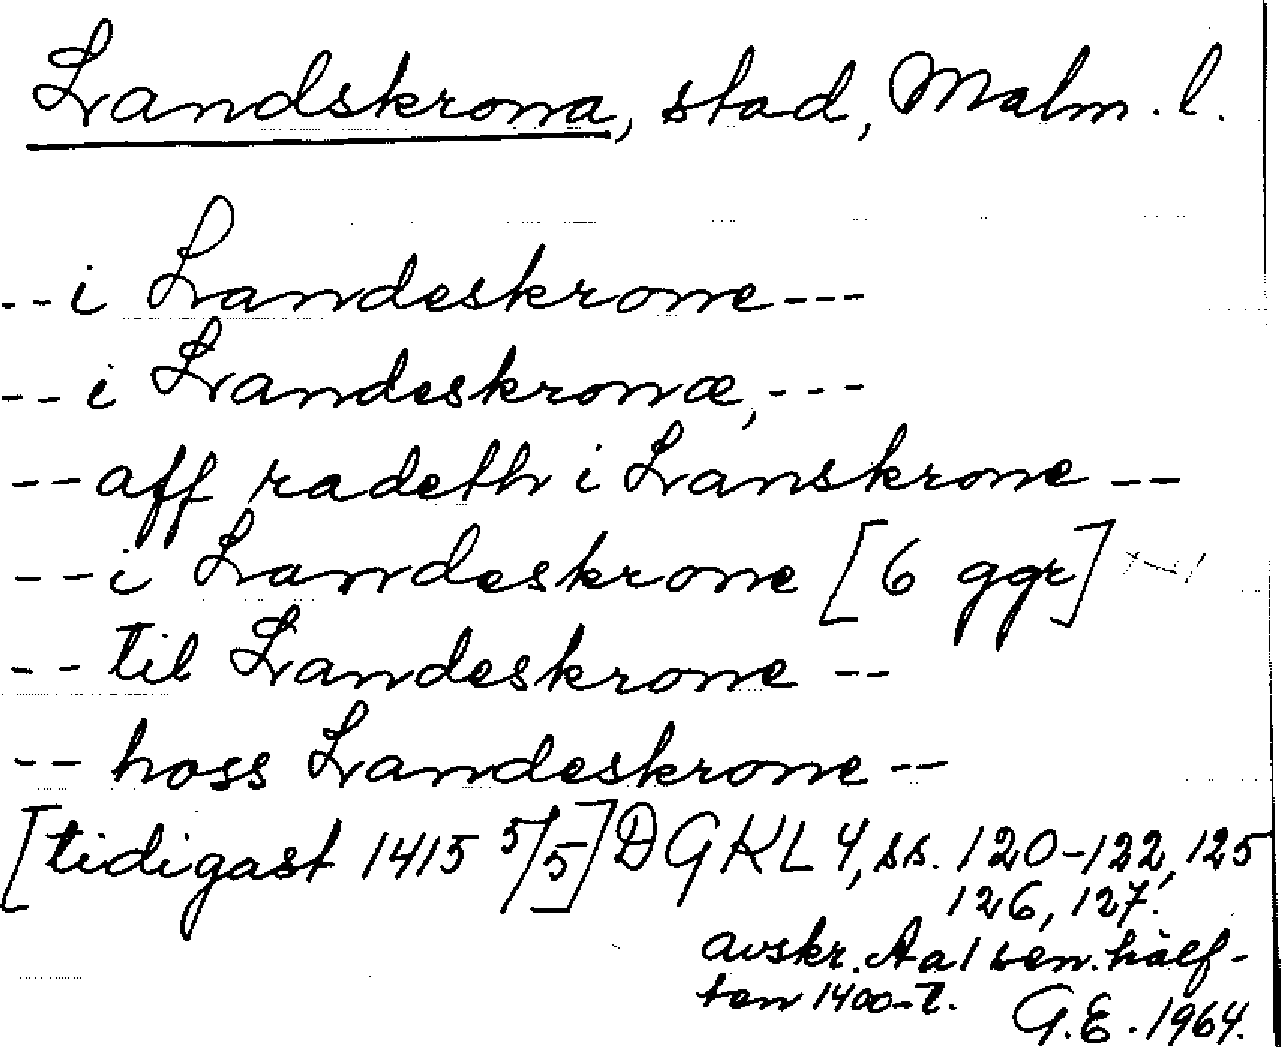 Landskrona, stad, Malm. l.
--i Landeskrone---
--i Landeskronæ,---
--aff radeth i Lanskrone--
--i Landeskrone [6 ggr]
--til Landeskrone--
--hoss Landeskrone--
[tidigast 1415 5/5] DGKL 4, ss. 120-122, 125
126, 127.
avskr. Aa1 sen. hälf-
ten 1400-t.
G.E. 1964.